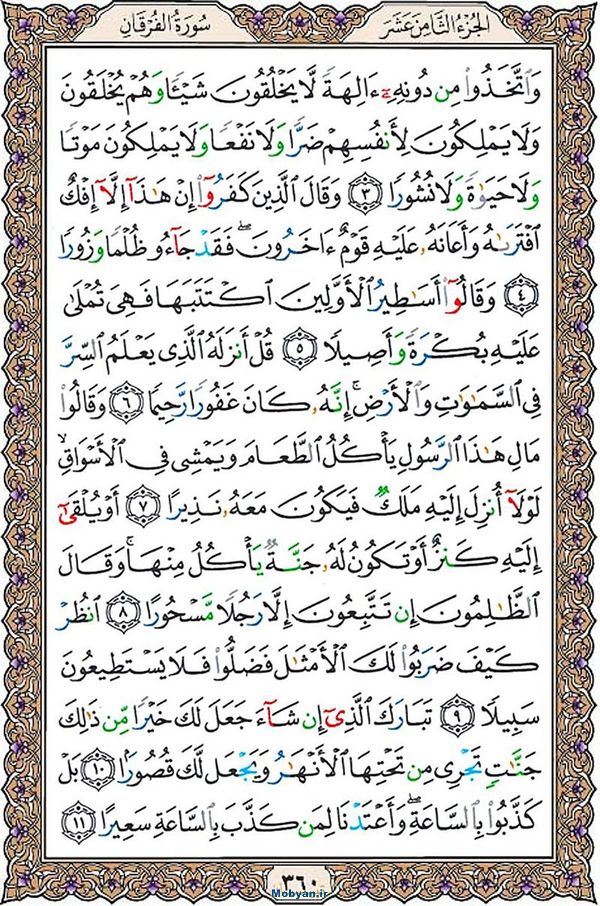 الجزء الثامن عشر
سورة الفرقان
وَٱتَّخَذُوا۟ مِن دُونِهِۦٓ ءَالِهَةً لَّا يَخْلُقُونَ شَيْـًٔا وَهُمْ يُخْلَقُونَ
وَلَا يَمْلِكُونَ لِأَنفُسِهِمْ ضَرًّا وَلَا نَفْعًا وَلَا يَمْلِكُونَ مَوْتًا
وَلَا حَيَوٰةً وَلَا نُشُورًا ٣ وَقَالَ ٱلَّذِينَ كَفَرُوٓا۟ إِنْ هَـٰذَآ إِلَّآ إِفْكٌ
ٱفْتَرَىٰهُ وَأَعَانَهُۥ عَلَيْهِ قَوْمٌ ءَاخَرُونَ ۖ فَقَدْ جَآءُو ظُلْمًا وَزُورًا
٤ وَقَالُوٓا۟ أَسَـٰطِيرُ ٱلْأَوَّلِينَ ٱكْتَتَبَهَا فَهِىَ تُمْلَىٰ
عَلَيْهِ بُكْرَةً وَأَصِيلًا ٥ قُلْ أَنزَلَهُ ٱلَّذِى يَعْلَمُ ٱلسِّرَّ
فِى ٱلسَّمَـٰوَٰتِ وَٱلْأَرْضِ ۚ إِنَّهُۥ كَانَ غَفُورًا رَّحِيمًا ٦ وَقَالُوا۟
مَالِ هَـٰذَا ٱلرَّسُولِ يَأْكُلُ ٱلطَّعَامَ وَيَمْشِى فِى ٱلْأَسْوَاقِ ۙ
لَوْلَآ أُنزِلَ إِلَيْهِ مَلَكٌ فَيَكُونَ مَعَهُۥ نَذِيرًا ٧ أَوْ يُلْقَىٰٓ
إِلَيْهِ كَنزٌ أَوْ تَكُونُ لَهُۥ جَنَّةٌ يَأْكُلُ مِنْهَا ۚ وَقَالَ
ٱلظَّـٰلِمُونَ إِن تَتَّبِعُونَ إِلَّا رَجُلًا مَّسْحُورًا ٨ ٱنظُرْ
كَيْفَ ضَرَبُوا۟ لَكَ ٱلْأَمْثَـٰلَ فَضَلُّوا۟ فَلَا يَسْتَطِيعُونَ
سَبِيلًا ٩ تَبَارَكَ ٱلَّذِىٓ إِن شَآءَ جَعَلَ لَكَ خَيْرًا مِّن ذَٰلِكَ
جَنَّـٰتٍ تَجْرِى مِن تَحْتِهَا ٱلْأَنْهَـٰرُ وَيَجْعَل لَّكَ قُصُورًۢا ١٠ بَلْ
كَذَّبُوا۟ بِٱلسَّاعَةِ ۖ وَأَعْتَدْنَا لِمَن كَذَّبَ بِٱلسَّاعَةِ سَعِيرًا ١١
٣٦٠
Mobyan.ir